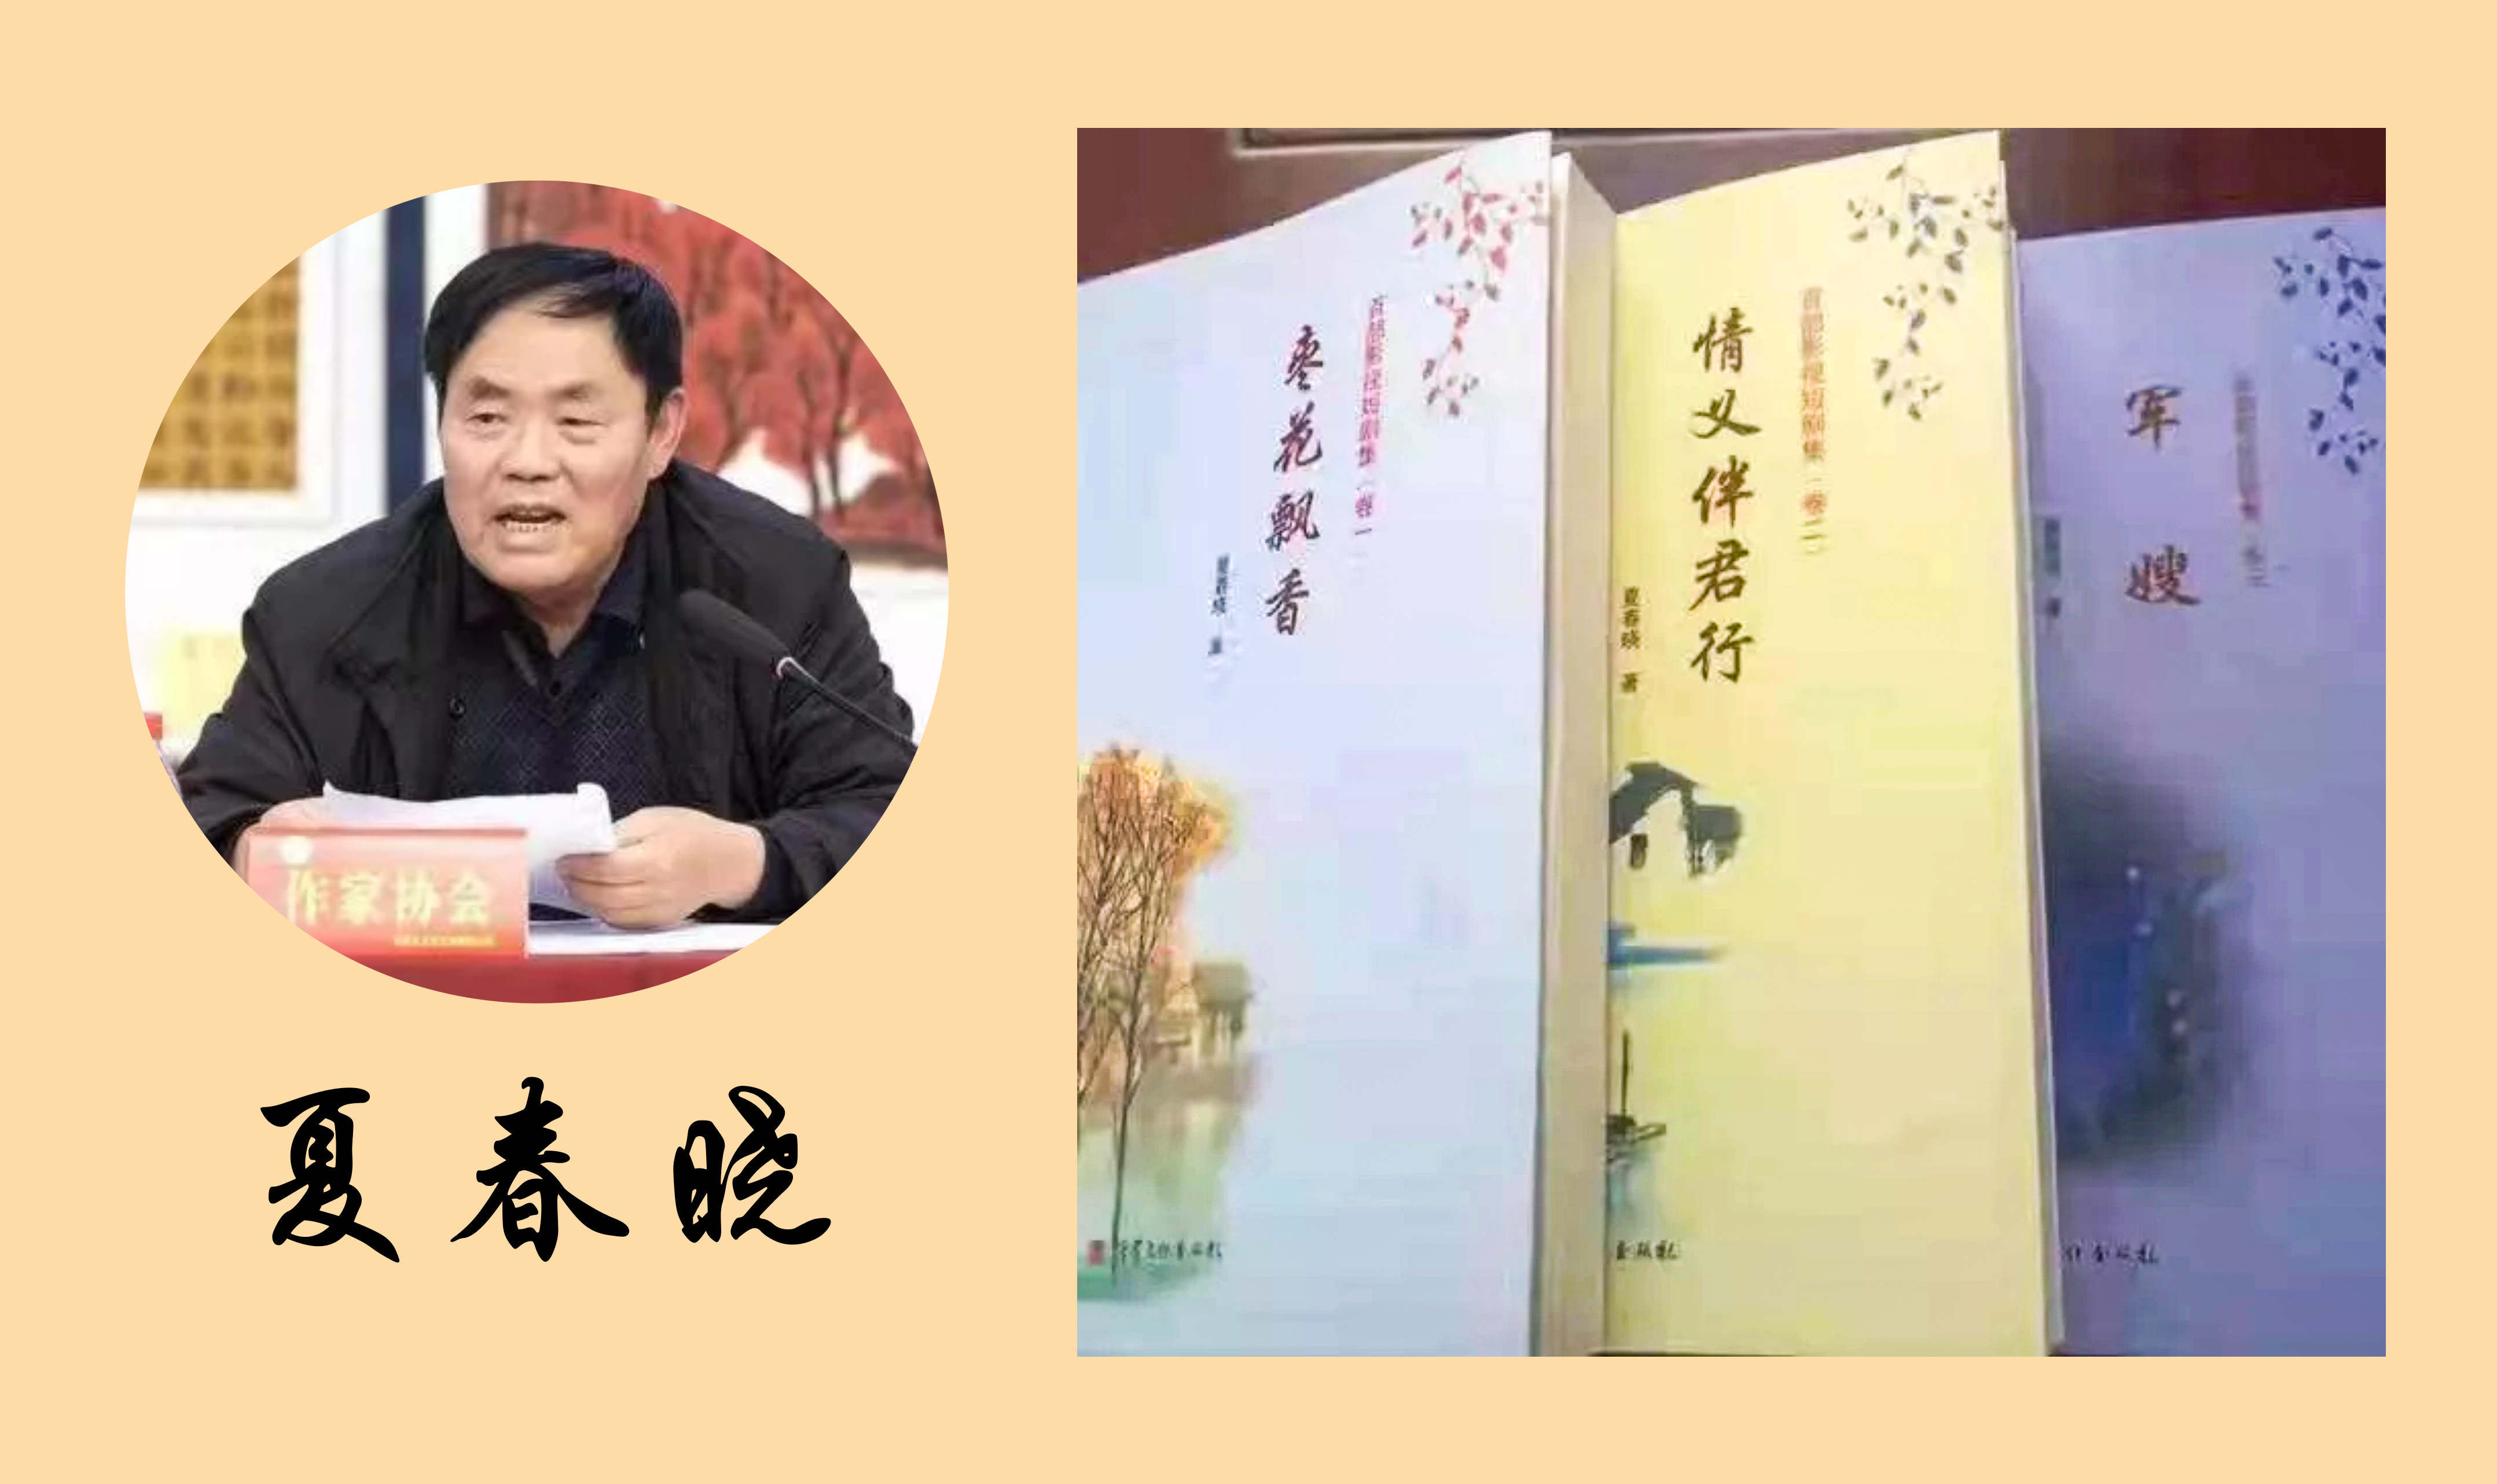 作家协会
夏春晓
百部影视短剧集（卷一）
枣花飘香
夏春晓 著
百部影视短剧集（卷二）
情义伴君行
夏春晓 著
出版社
军嫂
出版社